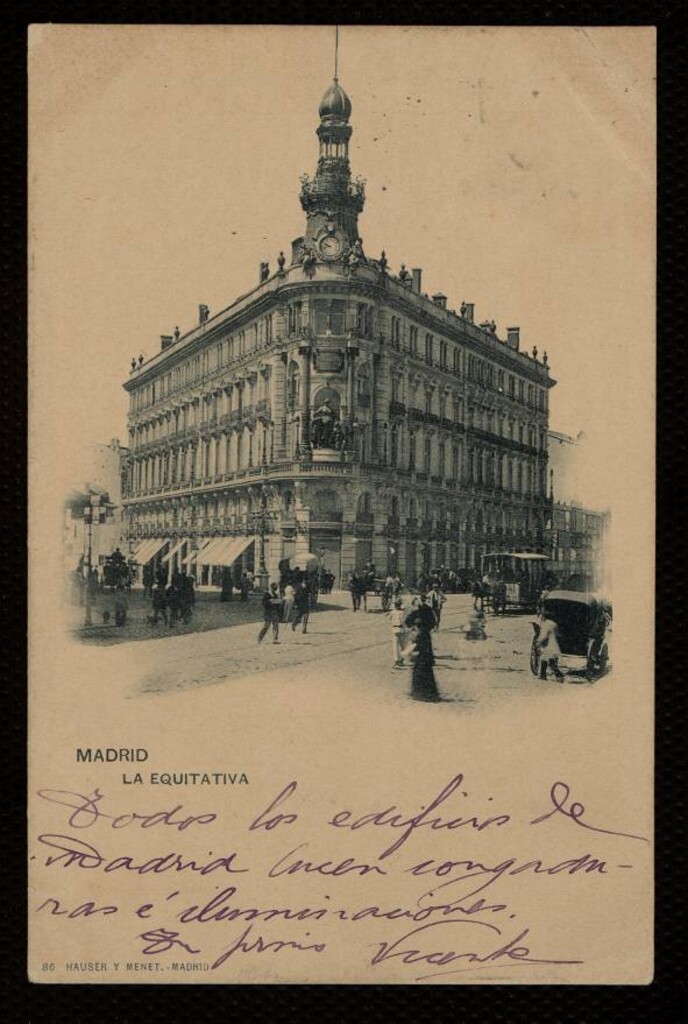 MADRID
LA EQUITATIVA
Todos los edificios de
Madrid lucen congadu-
ras é iluminaciones.
Tu primo Vicente
86 HAUSER Y MENET.-MADRID